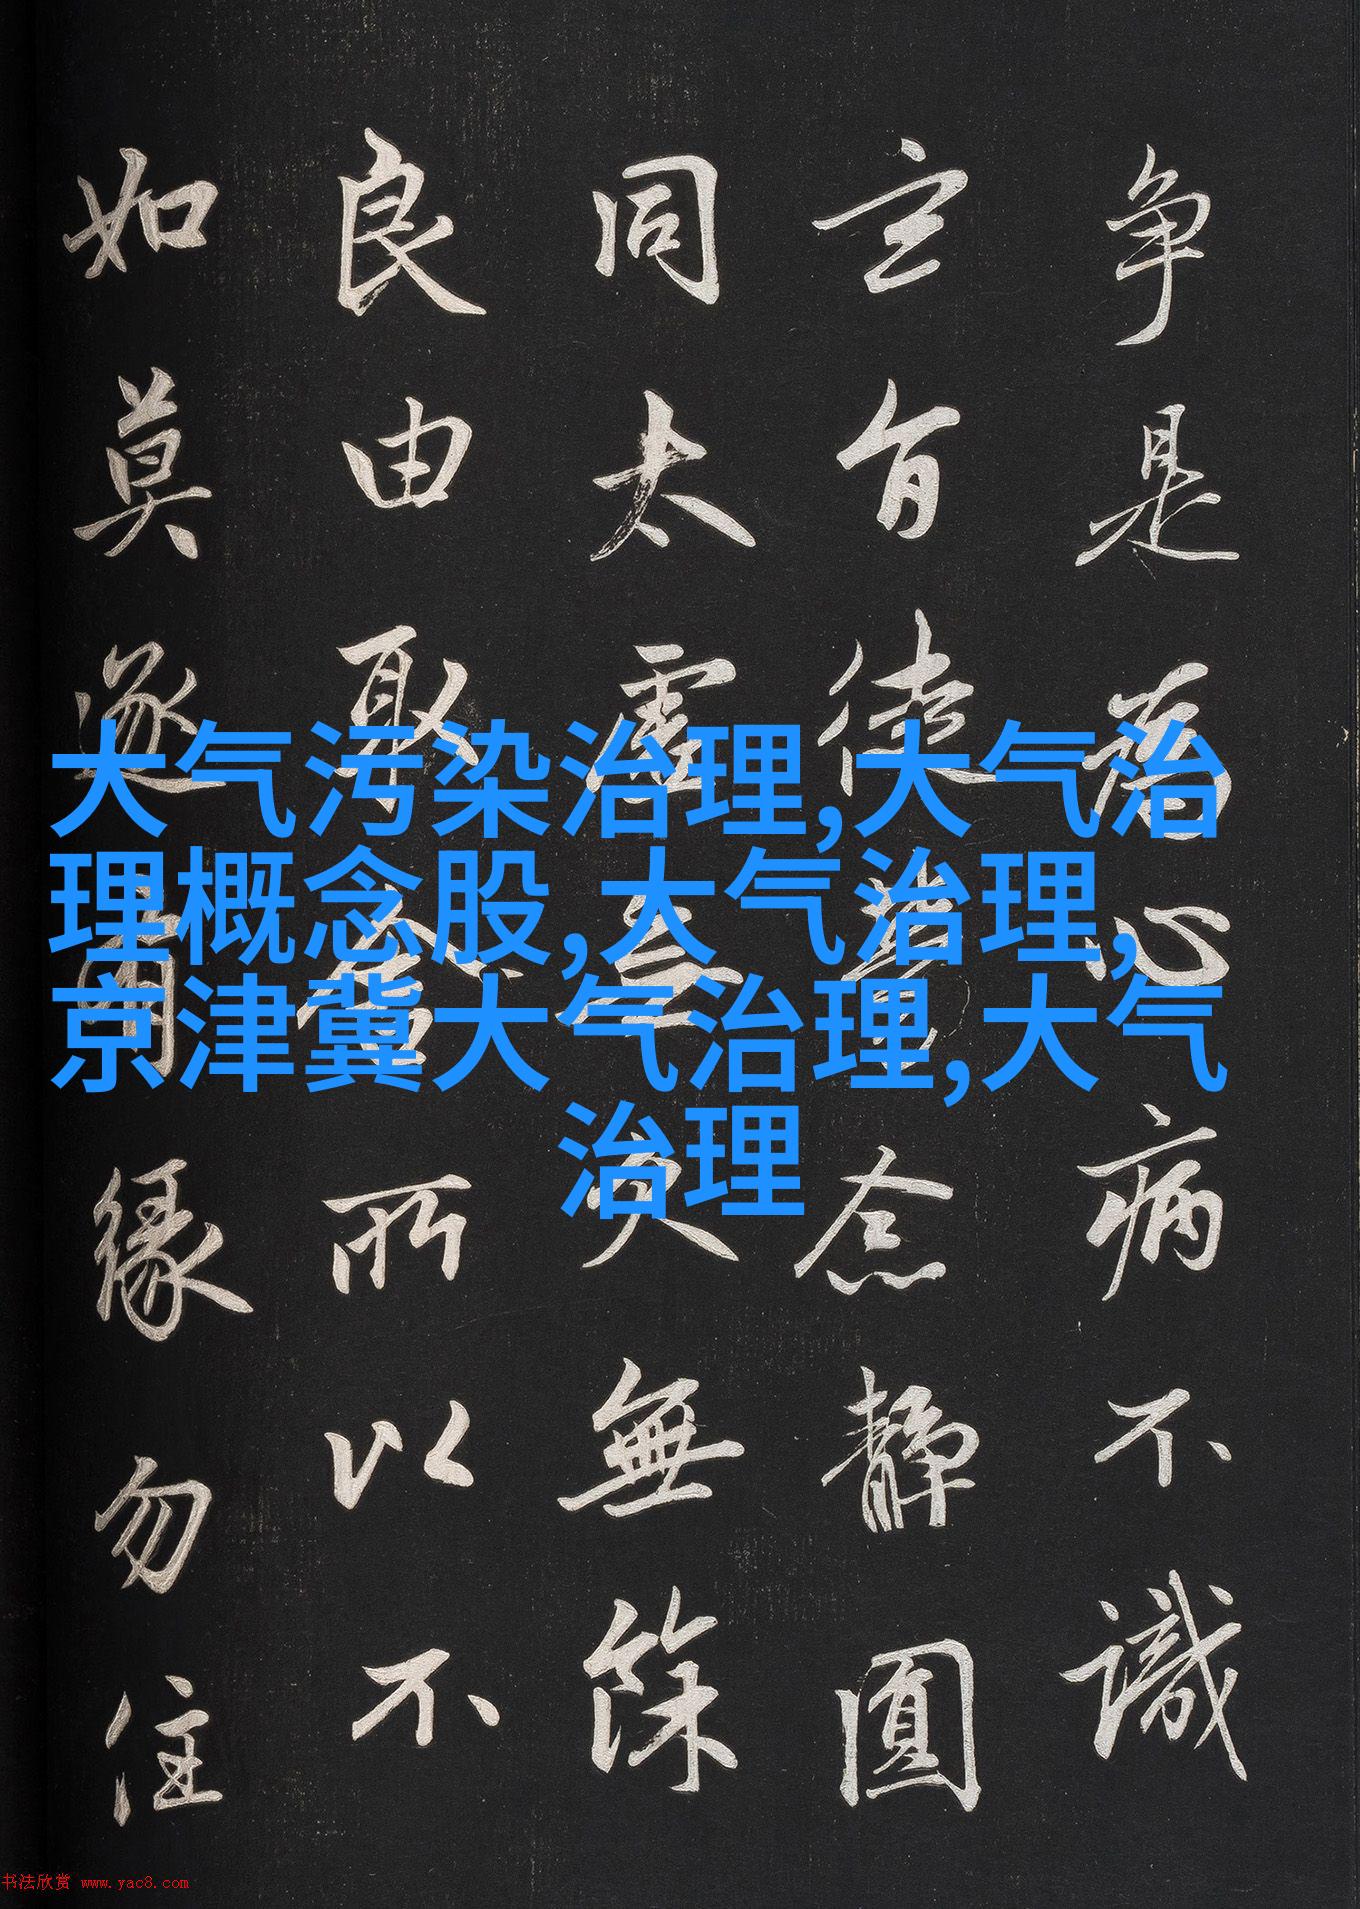 争是为心病不識
玄旨徒劳念静圓
同太虚無欠無餘
良由取舍所以不
如莫逐有緣勿住
大气污染治理,大气治
理概念股,大气治理,
京津冀大气治理,大气
治理
书法欣赏 www.yac8.com